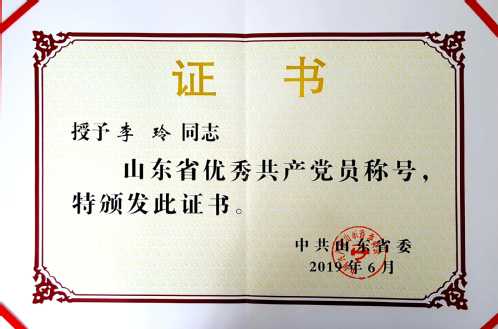 证 书
授予李 玲同志
山东省优秀共产党员称号，
特颁发此证书。
中共山东省委
2019年6月